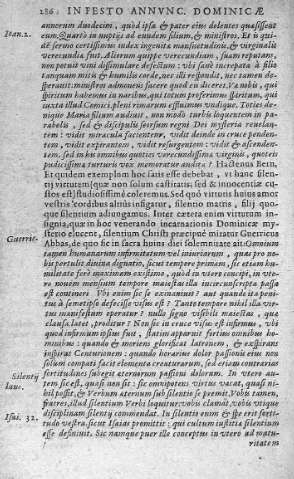 286 IN FESTO ANNVNC. DOMINICÆ
annorum duodecim, quòd ipsa & pater eius dolentes quæsissent
Ioan.2.
eum. Quartò in nuptijs ad eundem filium, & ministros. Et is qui-
dem sermo certissimus index ingenitæ mansuetudinis, & virginalis
verecundiæ fuit. Alienum quippe verecundiam, suam reputans,
non potuit vini dissimulare defectum: vbi sanè increpata à filio
tanquam mitis & humilis corde, nec illi respondit, nec tamen de-
sperauit: ministros admonens facere quod eis diceret. Væ nobis, qui
spiritum habemus in naribus, qui totum proferimus spiritum, qui
iuxta illud Comici pleni rimarum effluimus vndique. Toties de-
nique Maria filium audiuit, non modò turbis loquentem in pa-
rabolis, sed & discipulis seorsum regni Dei mysteria reuelan-
tem: vidit miracula facientem, vidit deinde in cruce penden-
tem, vidit expirantem, vidit resurgentem: vidit & ascenden-
tem. sed in his omnibus quoties verecundissimæ virginis, quoties
pudicissimæ turturis vox memoratur audita? Hactenus Bern.
Et quidem exemplum hoc satis esse debebat, vt hanc silenti
virtutem (quæ non solùm castitatis; sed & innocentiæ cu-
stos est) studiosissimè coleremus. Sed quò virtutis huius amor
vestris cordibus altiùs infigatur, silentio matris, filij quo-
que silentium adiungamus. Inter cætera enim virtutum in-
signia, quæ in hoc venerando incarnationis Dominicæ my-
sterio elucent, silentium Christi præcipuè miratur Guerricus
Guerric.
Abbas, de quo sic in sacra huius diei solemnitate ait: Omnium
tamen humanarum infirmitatum vel iniuriarum, quas pro no-
bis portare diuina dignatio, sicut tempore primam, sic etiam hu-
militate ferè maximam existimo, quòd in vtero concipi, in vte-
ro nouem mensium tempore maiestas illa incircunscripta passa
est contineri. Vbi enim sic se exinaniuit? aut quando ita peni-
tus à semetipso defecisse visus est? Tanto tempore nihil illa vir-
tus manifestum operatur? nullo signo visibili maiestas, quæ
clausa latet, proditur? Non sic in cruce visus est infirmus, vbi
quod infirmum eius fuit, statim apparuit fortius omnibus ho-
minibus: quando & moriens glorificat latronem, & exspirans
inspirat Centurionem: quando horarius dolor passionis eius non
solùm compati facit elementa creaturarum, sed etiam contrarias
fortitudines subegit æternarum passioni dolorum. In vtero au-
tem sic est, quasi non sit: sic omnipotens virtus vacat, quasi ni-
Silentij
hil possit, & Verbum æternum sub silentio se premit. Vobis tamen,
laus.
fratres, illud silentium Verbi loquitur, vobis clamat, vobis vtique
disciplinam silentij commendat. In silentio enim & spe erit forti-
Isai. 32.
tudo vestra, sicut Isaias promittit: qui cultum iustitiæ silentium
esse definiuit. Sic namque puer ille conceptus in vtero ad matu-
ritatem